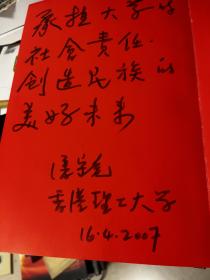 承担大学的
社会责任.
创造民族的
美好未来
香港理工大学
16.4.2007